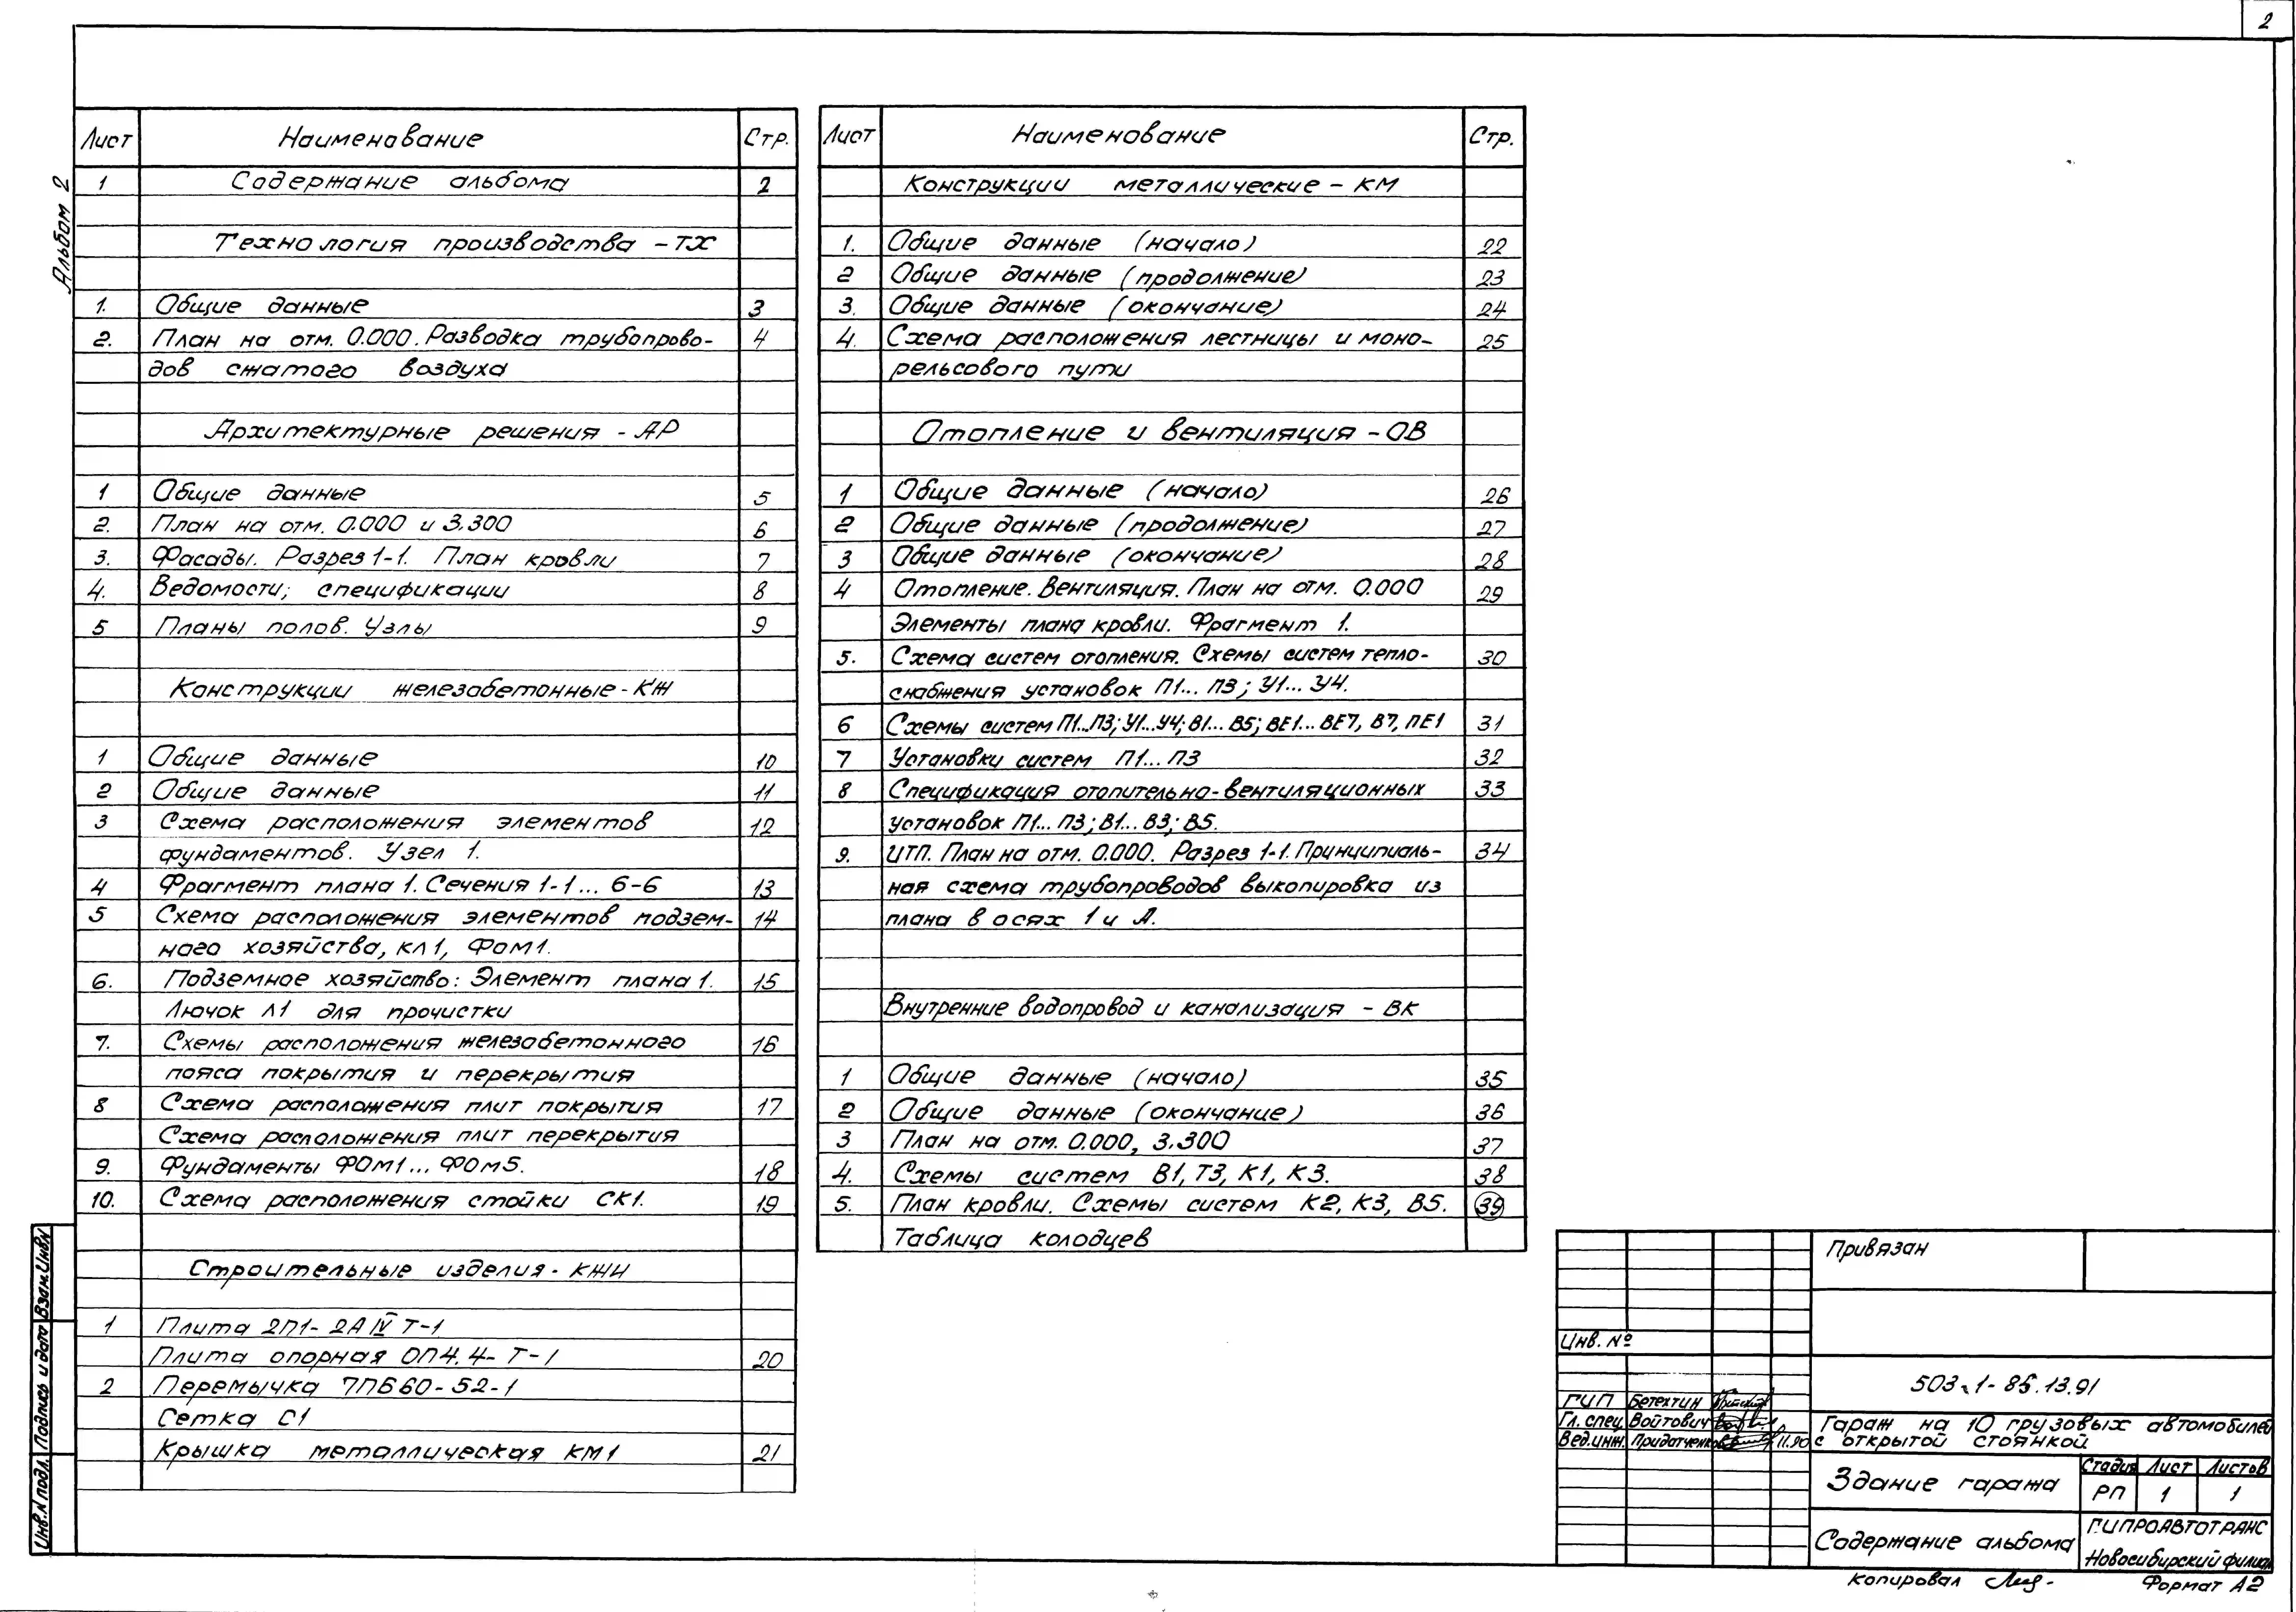 2
Альбом 2
Лист Наименование Стр.
1 Содержание альбома 2
Технология производства - ТХ
1. Общие данные 3
2. План на отм. 0.000. Разводка трубопрово- 4
дов сжатого воздуха
Архитектурные решения - АР
1 Общие данные 5
2. План на отм. 0.000 и 3.300 6
3. Фасады. Разрез 1-1. План кровли 7
4. Ведомости; спецификации 8
5 Планы полов. Узлы 9
Конструкции железобетонные - КЖ
1 Общие данные 10
2 Общие данные 11
3 Схема расположения элементов 12
фундаментов. Узел 1.
4 Фрагмент плана 1. Сечения 1-1... 6-6 13
5 Схема расположения элементов подзем- 14
ного хозяйства, кл1, Фом1.
6. Подземное хозяйство: Элемент плана 1. 15
Лючок Л1 для прочистки
7. Схемы расположения железобетонного 16
пояса покрытия и перекрытия
8 Схема расположения плит покрытия 17
Схема расположения плит перекрытия
9. Фундаменты ФОм1... ФОм5. 18
10. Схема расположения стойки СК1. 19
Строительные изделия - КЖИ
1 Плита 2П1- 2А IV Т-1
Плита опорная ОП4.4- Т-1 20
2 Перемычка 7ПБ60-52-1
Сетка С1
Крышка металлическая КМ1 21
Лист Наименование Стр.
Конструкции металлические - КМ
1. Общие данные (начало) 22
2 Общие данные (продолжение) 23
3. Общие данные (окончание) 24
4. Схема расположения лестницы и моно- 25
рельсового пути
Отопление и вентиляция - ОВ
1 Общие данные (начало) 26
2 Общие данные (продолжение) 27
3 Общие данные (окончание) 28
4 Отопление. Вентиляция. План на отм. 0.000 29
Элементы плана кровли. Фрагмент 1.
5. Схема систем отопления. Схемы систем тепло- 30
снабжения установок П1... П3; У1... У4.
6 Схемы систем П1...П3; У1...У4; В1... В5; ВЕ1... ВЕ7, В7, ПЕ1 31
7 Установки систем П1... П3 32
8 Спецификация отопительно-вентиляционных 33
установок П1... П3; В1... В3; В5.
9. ИТП. План на отм. 0.000. Разрез 1-1. Принципиаль- 34
ная схема трубопроводов выкопировка из
плана в осях 1 и А.
Внутренние водопровод и канализация - ВК
1 Общие данные (начало) 35
2 Общие данные (окончание) 36
3 План на отм. 0.000, 3.300 37
4. Схемы систем В1, Т3, К1, К3. 38
5. План кровли. Схемы систем К2, К3, В5. 39
Таблица колодцев
Инв.N подл. Подпись и дата Взам.Инв.N
Привязан
Инв. №
503-1-85.13.91
ГИП Бетехтин
Гл. спец. Войтович
Вед.инж. Придатченков 11.90
Гараж на 10 грузовых автомобилей
с открытой стоянкой.
Здание гаража
Стадия Лист Листов
РП 1 1
Содержание альбома
ГИПРОАВТОТРАНС
Новосибирский филиал
Копировал
Формат А2